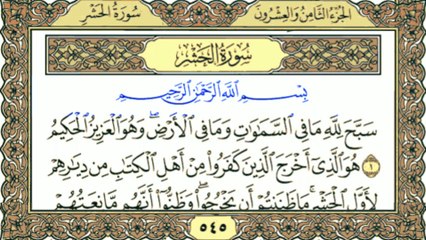 الجُزءُ الثَّامِنُ وَالعِشْرُونَ سُورَةُ الحَشْرِ
سُورَةُ الحَشْرِ
بِسْمِ اللَّهِ الرَّحْمَٰنِ الرَّحِيمِ
سَبَّحَ لِلَّهِ مَا فِي السَّمَٰوَٰتِ وَمَا فِي الْأَرْضِ ۖ وَهُوَ الْعَزِيزُ الْحَكِيمُ
١ هُوَ الَّذِي أَخْرَجَ الَّذِينَ كَفَرُوا مِنْ أَهْلِ الْكِتَٰبِ مِن دِيَٰرِهِمْ
لِأَوَّلِ الْحَشْرِ ۚ مَا ظَنَنتُمْ أَن يَخْرُجُوا ۖ وَظَنُّوا أَنَّهُم مَّانِعَتُهُمْ
٥٤٥